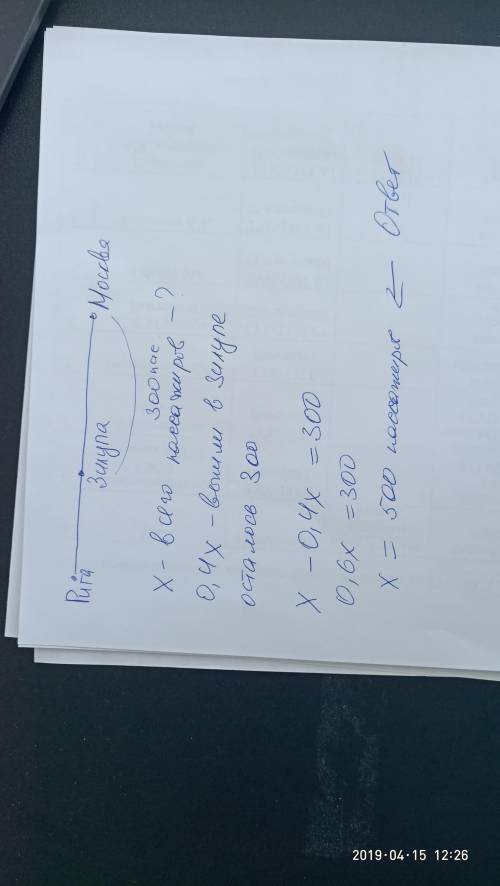 Рига Зилупа Москва
300 пас
x - всего пассажиров - ?
0,4x - вышли в Зилупе
осталось 300
x - 0,4x = 300
0,6x = 300
x = 500 пассажиров ← Ответ
2019-04-15 12:26